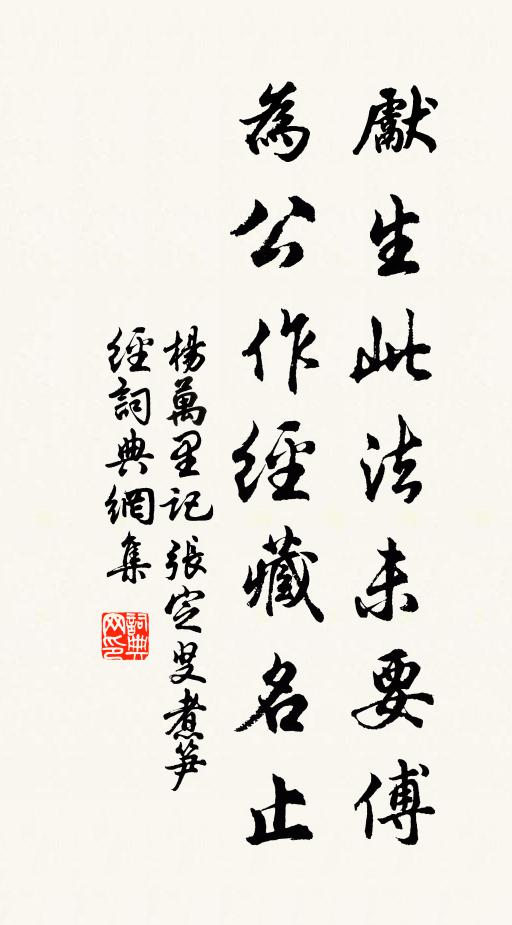 獻生此法未要傅
為公作經藏名止
楊萬里記張定叟煮笋
經詞典網集
詞典网印